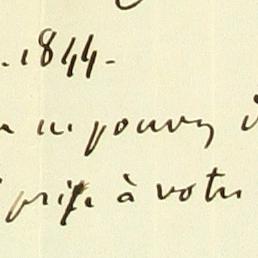 . 1844.
pouvez
prise à votre